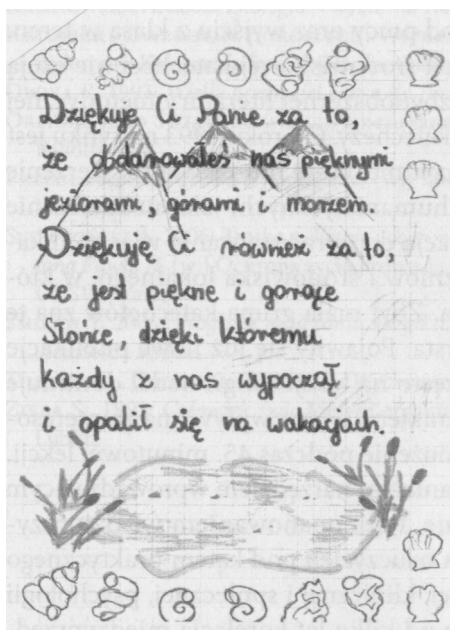 Dziękuje Ci Panie za to,
że obdarowałeś nas pięknymi
jeziorami, gorami i morzem.
Dziękuję Ci również za to,
że jest piękne i gorące
Słonce, dzięki któremu
każdy z nas wypoczął
i opalił się na wakacjach.